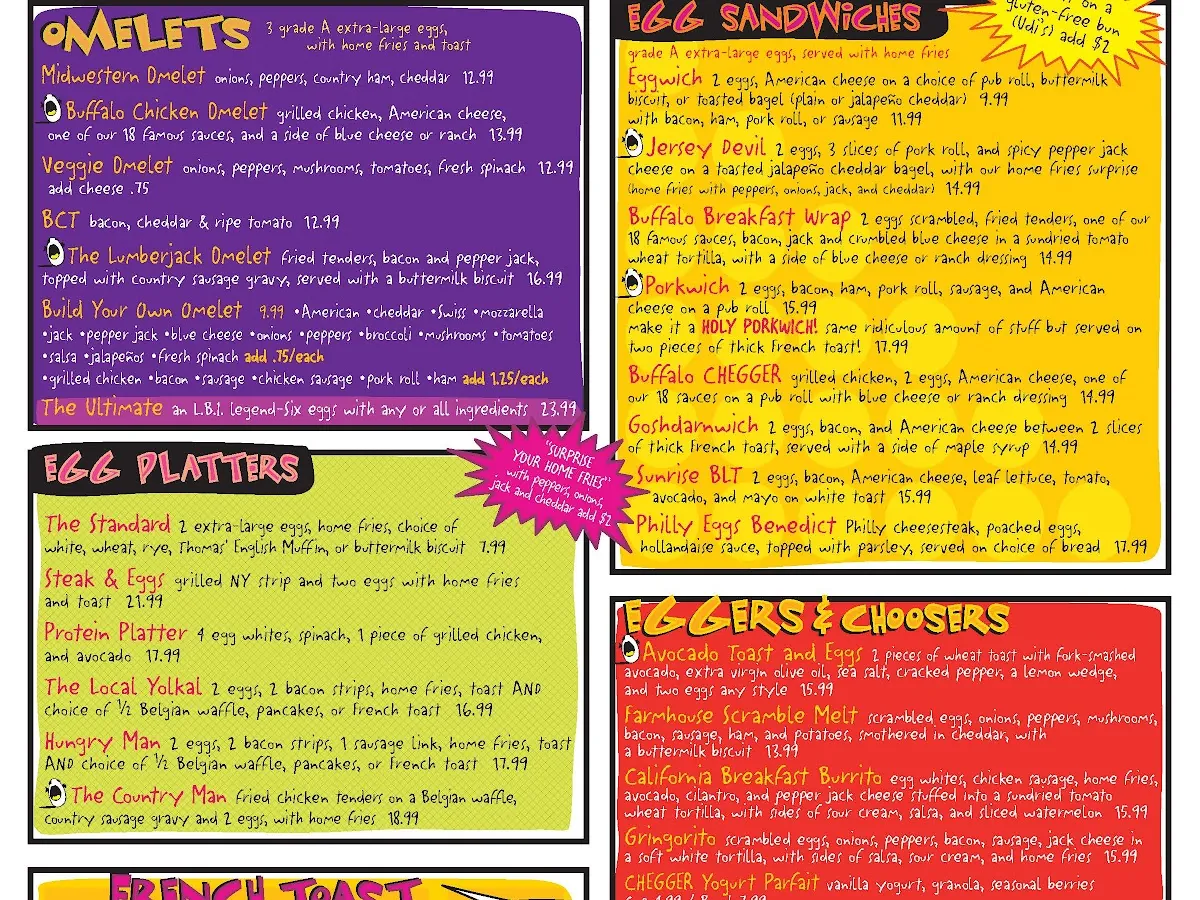 OMELETS 3 grade A extra-large eggs,
with home fries and toast
Midwestern Omelet onions, peppers, country ham, cheddar 12.99
Buffalo Chicken Omelet grilled chicken, American cheese,
one of our 18 famous sauces, and a side of blue cheese or ranch 13.99
Veggie Omelet onions, peppers, mushrooms, tomatoes, fresh spinach 12.99
add cheese .75
BCT bacon, cheddar & ripe tomato 12.99
The Lumberjack Omelet fried tenders, bacon and pepper jack,
topped with country sausage gravy, served with a buttermilk biscuit 16.99
Build Your Own Omelet 9.99 •American •cheddar •Swiss •mozzarella
•jack •pepper jack •blue cheese •onions •peppers •broccoli •mushrooms •tomatoes
•salsa •jalapeños •fresh spinach add .75/each
•grilled chicken •bacon •sausage •chicken sausage •pork roll •ham add 1.25/each
The Ultimate an L.B.I. legend-Six eggs with any or all ingredients 23.99
EGG PLATTERS
"SURPRISE
YOUR HOME FRIES"
with peppers, onions,
jack and cheddar add $2
The Standard 2 extra-large eggs, home fries, choice of
white, wheat, rye, Thomas' English Muffin, or buttermilk biscuit 7.99
Steak & Eggs grilled NY strip and two eggs with home fries
and toast 21.99
Protein Platter 4 egg whites, spinach, 1 piece of grilled chicken,
and avocado 17.99
The Local Yolkal 2 eggs, 2 bacon strips, home fries, toast AND
choice of ½ Belgian waffle, pancakes, or French toast 16.99
Hungry Man 2 eggs, 2 bacon strips, 1 sausage link, home fries, toast
AND choice of ½ Belgian waffle, pancakes, or French toast 17.99
The Country Man fried chicken tenders on a Belgian waffle,
country sausage gravy and 2 eggs, with home fries 18.99
FRENCH TOAST
EGG SANDWICHES
on a
gluten-free bun
(Udi's) add $2
grade A extra-large eggs, served with home fries
Eggwich 2 eggs, American cheese on a choice of pub roll, buttermilk
biscuit, or toasted bagel (plain or jalapeño cheddar) 9.99
with bacon, ham, pork roll, or sausage 11.99
Jersey Devil 2 eggs, 3 slices of pork roll, and spicy pepper jack
cheese on a toasted jalapeño cheddar bagel, with our home fries surprise
(home fries with peppers, onions, jack, and cheddar) 14.99
Buffalo Breakfast Wrap 2 eggs scrambled, fried tenders, one of our
18 famous sauces, bacon, jack and crumbled blue cheese in a sundried tomato
wheat tortilla, with a side of blue cheese or ranch dressing 14.99
Porkwich 2 eggs, bacon, ham, pork roll, sausage, and American
cheese on a pub roll 15.99
make it a HOLY PORKWICH! same ridiculous amount of stuff but served on
two pieces of thick French toast! 17.99
Buffalo CHEGGER grilled chicken, 2 eggs, American cheese, one of
our 18 sauces on a pub roll with blue cheese or ranch dressing 14.99
Goshdarnwich 2 eggs, bacon, and American cheese between 2 slices
of thick French toast, served with a side of maple syrup 14.99
Sunrise BLT 2 eggs, bacon, American cheese, leaf lettuce, tomato,
avocado, and mayo on white toast 15.99
Philly Eggs Benedict Philly cheesesteak, poached eggs,
hollandaise sauce, topped with parsley, served on choice of bread 17.99
EGGERS & CHOOSERS
Avocado Toast and Eggs 2 pieces of wheat toast with fork-smashed
avocado, extra virgin olive oil, sea salt, cracked pepper, a lemon wedge,
and two eggs any style 15.99
Farmhouse Scramble Melt scrambled eggs, onions, peppers, mushrooms,
bacon, sausage, ham, and potatoes, smothered in cheddar, with
a buttermilk biscuit 13.99
California Breakfast Burrito egg whites, chicken sausage, home fries,
avocado, cilantro, and pepper jack cheese stuffed into a sundried tomato
wheat tortilla, with sides of sour cream, salsa, and sliced watermelon 15.99
Gringorito scrambled eggs, onions, peppers, bacon, sausage, jack cheese in
a soft white tortilla, with sides of salsa, sour cream, and home fries 15.99
CHEGGER Yogurt Parfait vanilla yogurt, granola, seasonal berries